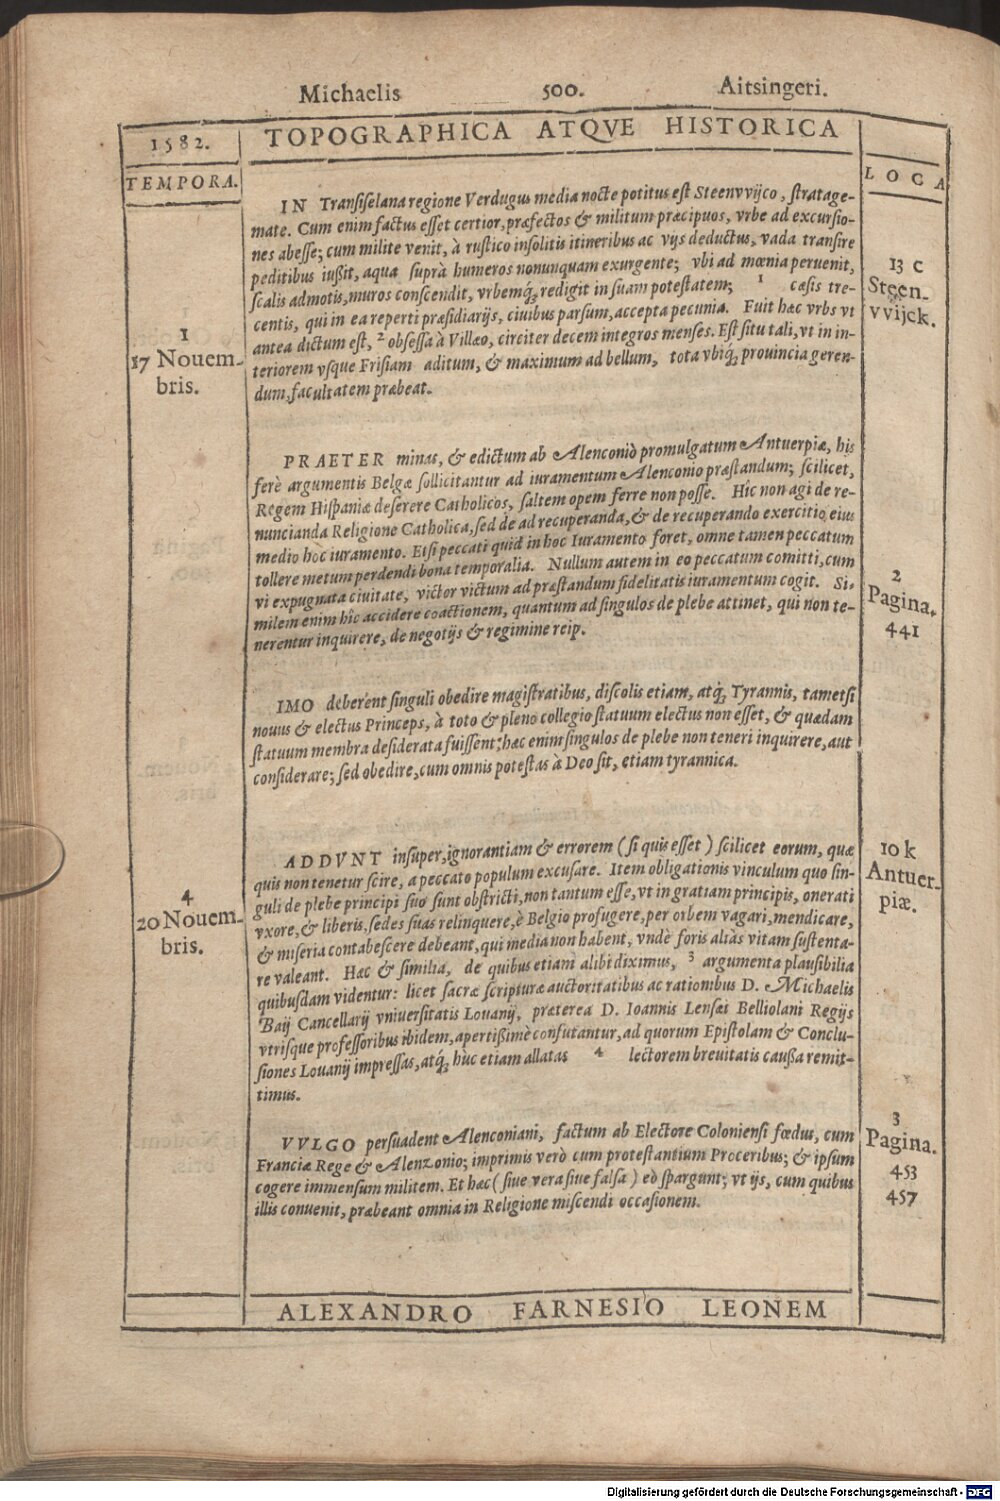 Michaelis 500. Aitsingeri.
1582. TOPOGRAPHICA ATQVE HISTORICA
TEMPORA. LOCA
IN Transiselana regione Verdugus media nocte potitus est Steenvvijco, stratage-
mate. Cum enim factus esset certior, præfectos & militum præcipuos, vrbe ad excursio-
nes abesse; cum milite venit, à rustico insolitis itineribus ac vijs deductus, vada transire
peditibus iußit, aqua suprà humeros nonunquam exurgente; vbi ad mœnia peruenit,
scalis admotis, muros conscendit, vrbemq́; redigit in suam potestatem; 1 cæsis tre-
centis, qui in ea reperti præsidiarijs, ciuibus parsum, accepta pecunia. Fuit hæc vrbs vt
antea dictum est, 2 obsessa à Villæo, circiter decem integros menses. Est situ tali, vt in in-
teriorem vsque Frisiam aditum, & maximum ad bellum, tota vbiq́; prouincia geren-
dum, facultatem præbeat.
1
17 Nouem-
bris.
13 c
Steen-
vvijck.
PRAETER minas, & edictum ab Alenconio promulgatum Antuerpiæ, his
ferè argumentis Belgæ sollicitantur ad iuramentum Alenconio præstandum; scilicet,
Regem Hispaniæ deserere Catholicos, saltem opem ferre non posse. Hîc non agi de re-
nuncianda Religione Catholica, sed de ad recuperanda, & de recuperando exercitio eius
medio hoc iuramento. Etsi peccati quid in hoc Iuramento foret, omne tamen peccatum
tollere metum perdendi bona temporalia. Nullum autem in eo peccatum comitti, cum
vi expugnata ciuitate, victor victum ad præstandum fidelitatis iuramentum cogit. Si-
milem enim hîc accidere coactionem, quantum ad singulos de plebe attinet, qui non te-
nerentur inquirere, de negotijs & regimine reip.
2
Pagina.
441
IMO deberent singuli obedire magistratibus, discolis etiam, atq́; Tyrannis, tametsi
nouus & electus Princeps, à toto & pleno collegio statuum electus non esset, & quædam
statuum membra desiderata fuissent: hæc enim singulos de plebe non teneri inquirere, aut
considerare; sed obedire, cum omnis potestas à Deo sit, etiam tyrannica.
ADDVNT insuper, ignorantiam & errorem (si quis esset) scilicet eorum, quæ
quis non tenetur scire, a peccato populum excusare. Item obligationis vinculum quo sin-
guli de plebe principi suo sunt obstricti, non tantum esse, vt in gratiam principis, onerati
vxore, & liberis, sedes suas relinquere, è Belgio profugere, per orbem vagari, mendicare,
& miseria contabescere debeant, qui media non habent, vndè foris aliàs vitam sustenta-
re valeant. Hæc & similia, de quibus etiam alibi diximus, 3 argumenta plausibilia
quibusdam videntur: licet sacræ scripturæ auctoritatibus ac rationibus D. Michaelis
Baij Cancellarij vniuersitatis Louanij, præterea D. Ioannis Lensæi Belliolani Regijs
vtrisque professoribus ibidem, apertißimè confutantur, ad quorum Epistolam & Conclu-
siones Louanij impressas, atq́; hùc etiam allatas 4 lectorem breuitatis caußa remit-
timus.
4
20 Nouem-
bris.
10 k
Antuer-
piæ.
VVLGO persuadent Alenconiani, factum ab Electore Coloniensi fœdus, cum
Franciæ Rege & Alenzonio; imprimis verò cum protestantium Proceribus; & ipsum
cogere immensum militem. Et hæc (siue vera siue falsa) eò spargunt; vt ijs, cum quibus
illis conuenit, præbeant omnia in Religione miscendi occasionem.
3
Pagina.
453
457
ALEXANDRO FARNESIO LEONEM
Digitalisierung gefördert durch die Deutsche Forschungsgemeinschaft - DFG